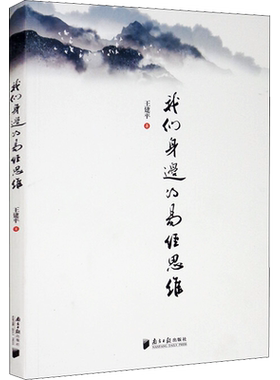 我们身邊的易经思维
王建平 著
南方日报出版社
我们身邊的易经思维
王建平 著
南方日报出版社
NANFANG DAILY PRESS